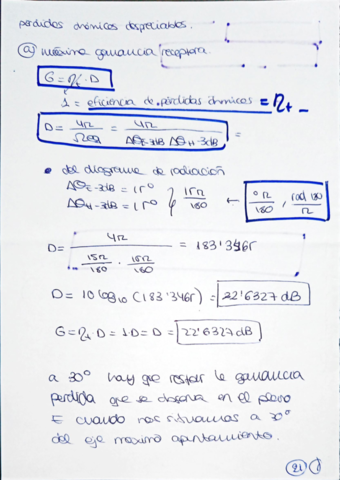 perdidas óhmicas despreciables.
ⓐ máxima ganancia receptora.
G = η · D
1 = eficiencia de perdidas óhmicas = η+
D = 4π/Ωeq = 4π/(ΔΘE-3dB ΔΘH-3dB) =
• del diagrama de radiación
ΔΘE-3dB = 15º } 15π/180 ← º π/180 , rad 180/π
ΔΘH-3dB = 15º
D = 4π/(15π/180 · 15π/180) = 183'3465
D = 10 log10 (183'3465) = 22'6327 dB
G = η · D = 1·D = D = 22'6327 dB
a 30º hay que restar la ganancia
perdida que se observa en el plano
E cuando nos situamos a 30º
del eje máximo apuntamiento.
21